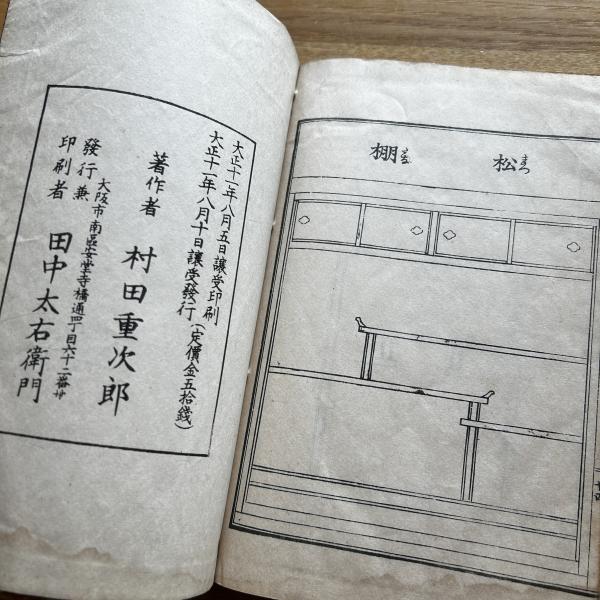 松まつ棚だな
大正十一年八月五日讓受印刷
大正十一年八月十日讓受發行(定價金五拾錢)
著作者 村田重次郎
大阪市南區安堂寺橋通四丁目六十二番地
發行兼印刷者 田中太右衛門